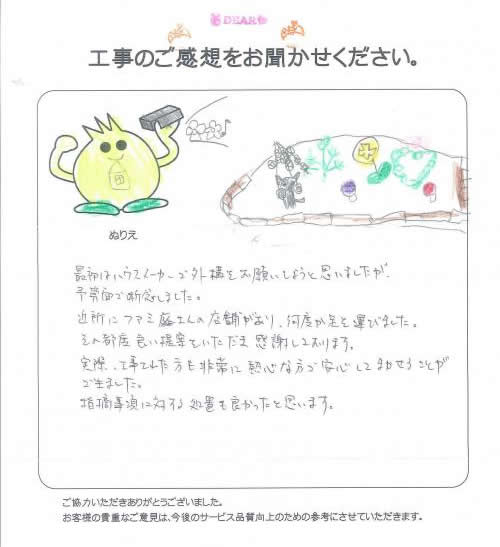 DEAR
工事のご感想をお聞かせください。
ぬりえ
最初はハウスメーカーで外構をお願いしようと思いましたが、
予算面で断念しました。
近所にファミ庭さんの店舗があり、何度か足を運びました。
その都度良い提案でいただき感謝しております。
実際、工事でれた方も非常に熱心な方で安心してまかせることが
できました。
指摘事項に対する処置も良かったと思います。
ご協力いただきありがとうございました。
お客様の貴重なご意見は、今後のサービス品質向上のための参考にさせていただきます。